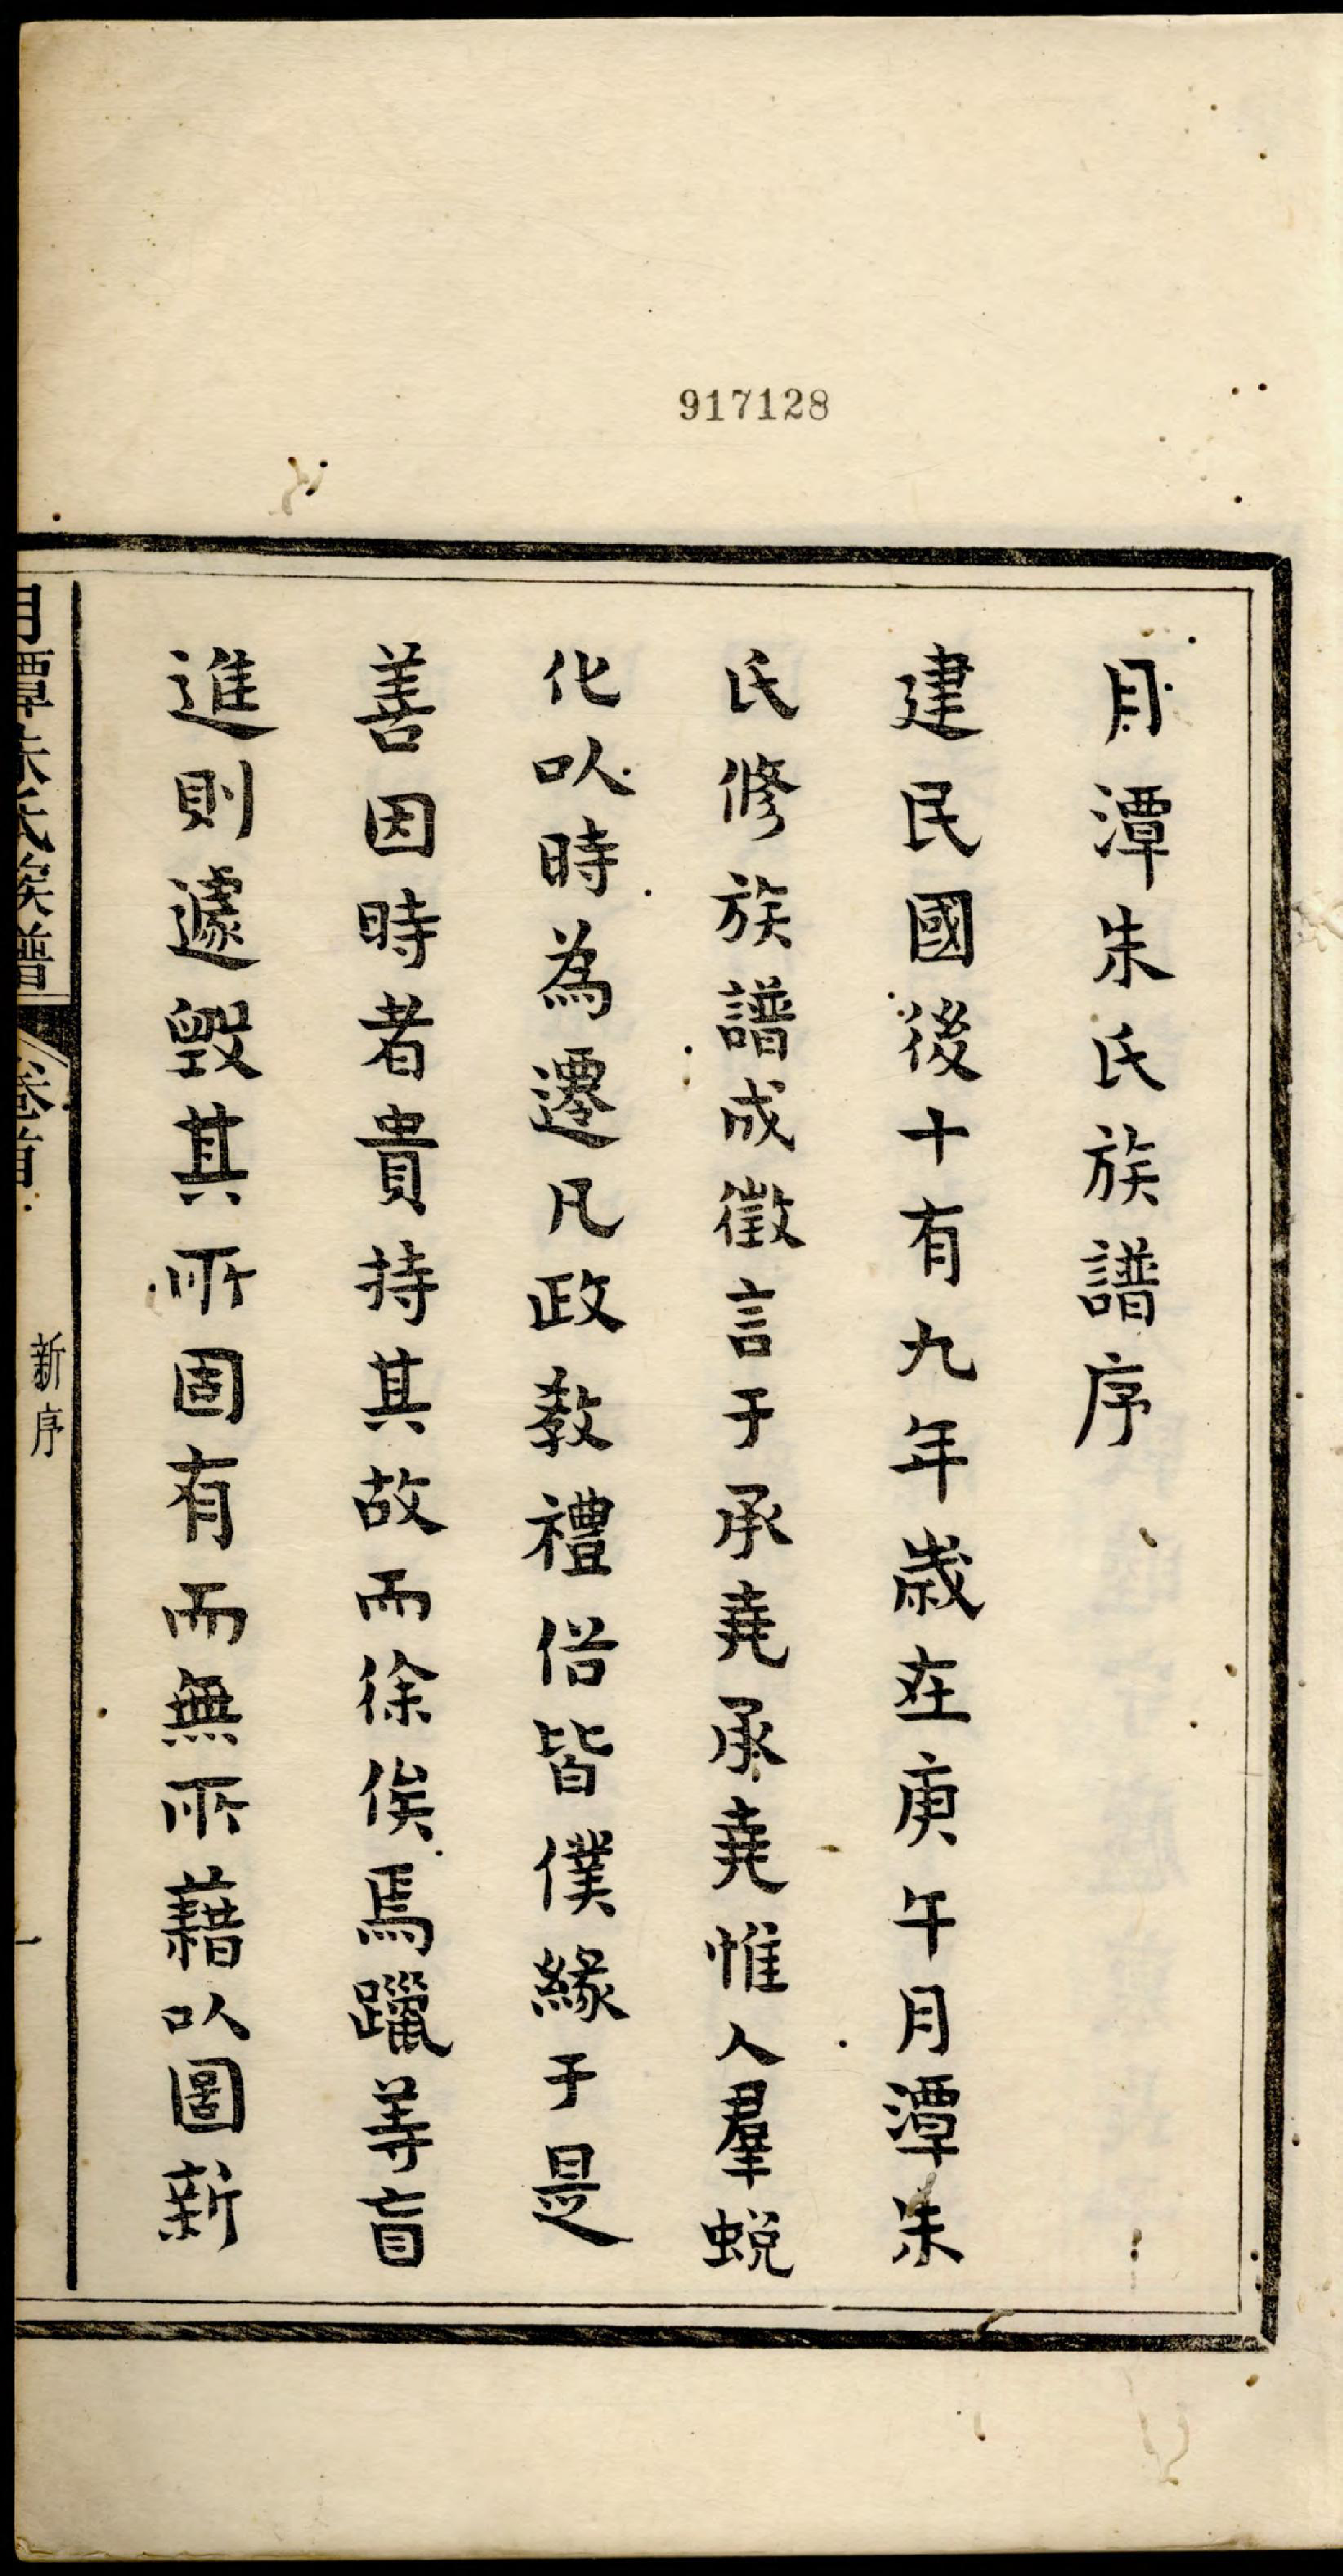 917128
月潭朱氏族譜序
建民國後十有九年歲在庚午月潭朱
氏修族譜成徵言于承堯承堯惟人羣蛻
化以時為遷凡政教禮俗皆僕緣于是
善因時者貴持其故而徐俟焉躐等盲
進則遽毀其所固有而無所藉以圖新
月潭朱氏族譜 卷首 新序 一